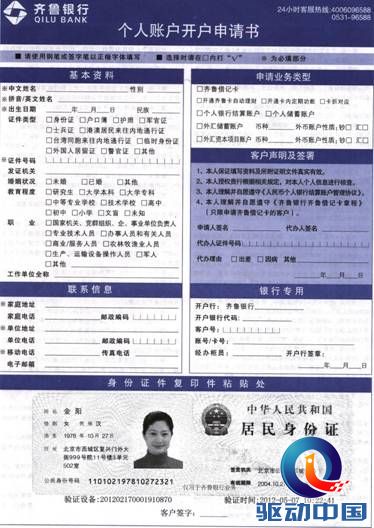 齐鲁银行
QILU BANK
24小时客服热线:4006096588
0531-96588
个人账户开户申请书
■ 请使用钢笔或签字笔以正楷字体填写 ■ 选择时请在□内打 "√" ※ 为必填部分
基本资料
※中文姓名 性别
※拼音/英文姓名
※出生日期 年 月 日 民族
证件类型 □身份证 □户口簿 □护照 □军官证
□士兵证 □港澳居民来往内地通行证
□台湾同胞来往内地通行证 □临时身份证
□外国人居留证 □警官证 □其他
※证件号码
发证机关
婚姻状况 □未婚 □已婚 □其他
教育程度 □研究生 □大学本科 □大学专科
□中等专业学校 □技术学校 □高中
□初中 □小学 □文盲 □未知
职业 □国家机关、党群组织、企、事业单位负责人
□专业技术人员 □办事人员和有关人员
□商业/服务人员 □农林牧渔业人员
□生产、运输设备操作人员 □军人
□其他
工作单位全称
申请业务类型
□齐鲁借记卡
□开通齐鲁卡自动理财 □开通卡内定期功能 □卡折对应
□个人银行结算账户 □个人储蓄账户
□外汇储蓄账户 币种 外币账户性质:钞□ 汇□
□外汇资本项目账户 币种 外币账户性质:钞□ 汇□
客户声明及签署
1. 本人保证填写资料及所附证明文件真实有效。
2. 本人授权贵行根据相关规定，对本人个人信息进行核查。
3. 本人理解并自愿遵守《人民币个人银行结算账户管理协议》。
4. 本人理解并自愿遵守《齐鲁银行齐鲁借记卡章程》
(只限申请齐鲁借记卡的客户)。
申请人签名 代办人签名
代办人证件号码
代办理由 □出差 □因病 其他
年 月 日
联系信息
※家庭地址
家庭电话 邮政编码
※单位地址
单位电话 邮政编码
※移动电话 传真电话
电子邮箱
银行专用
开户行: 齐鲁银行
开户银行代码:
客户号:
账号/卡号:
经办柜员: 开户行签章:
年 月 日
身份证件复印件粘贴处
姓名 金阳
性别 女 民族 汉
出生 1978 年 10 月 27 日
住址 北京市西城区复兴门外大
街999号院11号楼3单元
502室
公民身份号码 110102197810272321
中华人民共和国
居民身份证
仅用于齐鲁银行业务
验证设备:2012021700019108​70
验证时间:2012-05-07 10:22:41
客户签字:
驱动中国